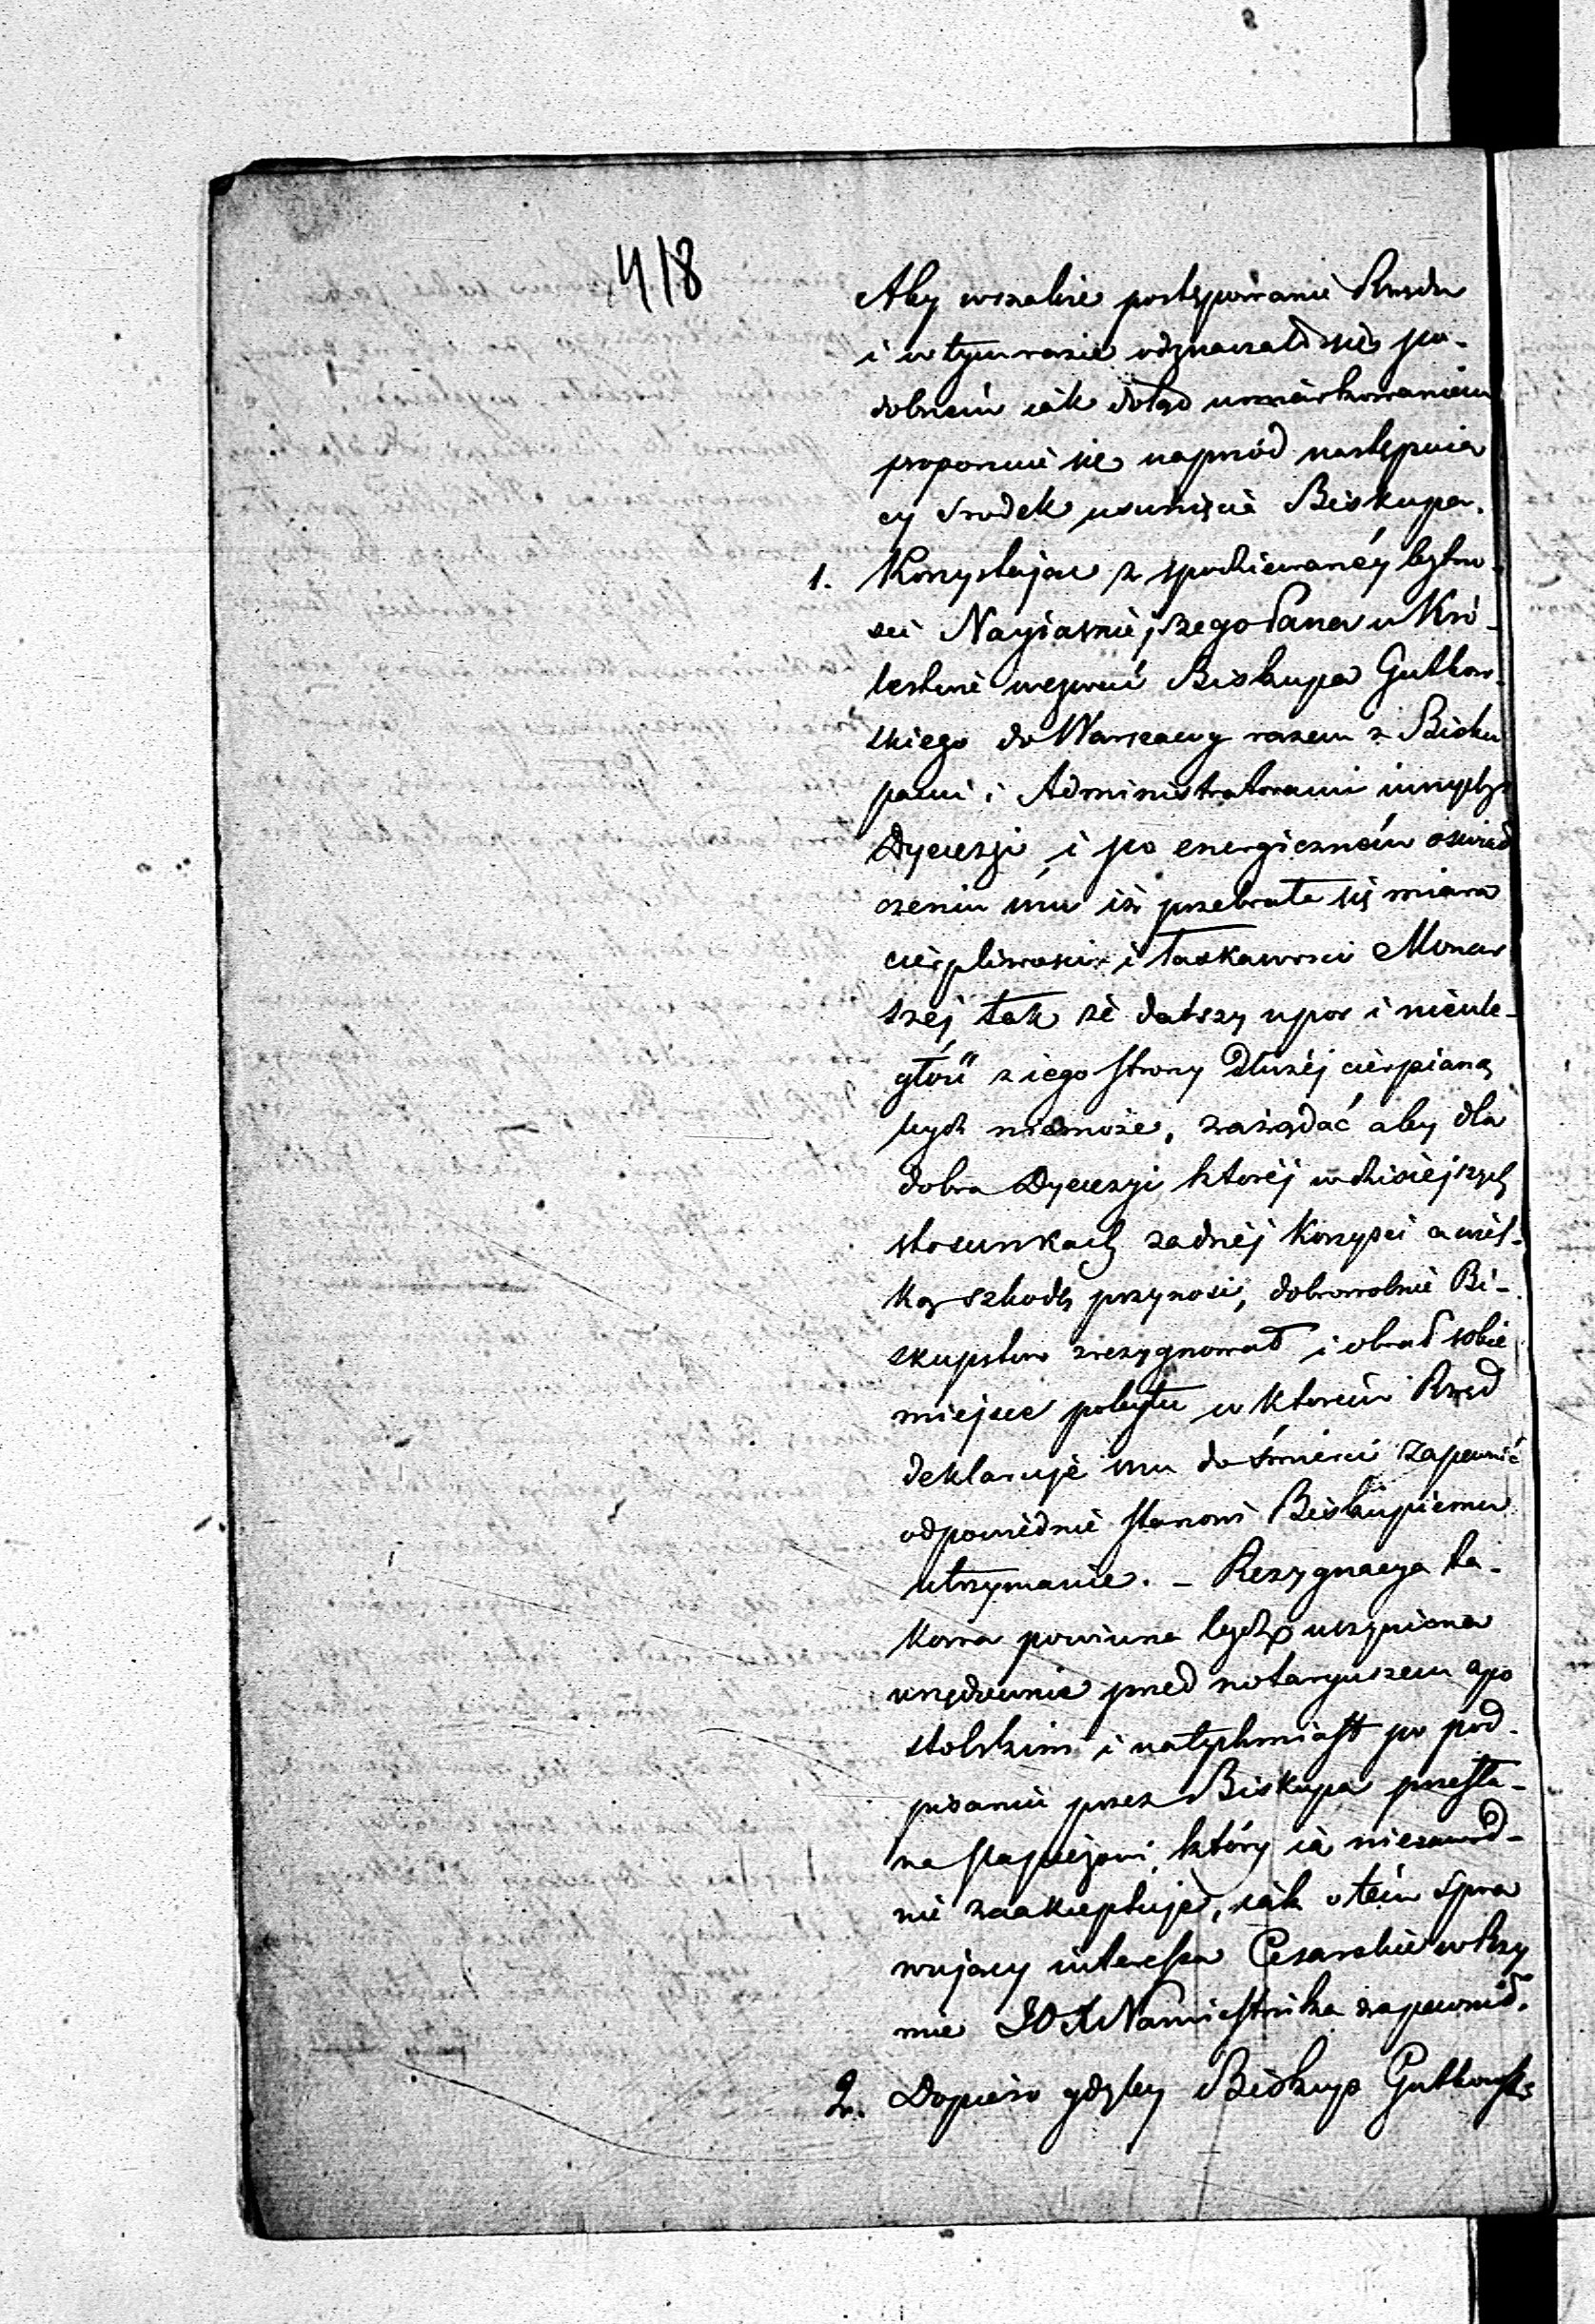 418
Aby wszakże postępowanie Rządu
i w tym razie odznaczało się po-
dobném iak dotąd umiarkowaniem
proponuie się naprzód następuią
cy srodek usunięcia Biskupa.
1. Korzystaiąc z spodziewanéy bytno-
sci Nayiaśniejszego Pana w Kró-
lestwie wezwać Biskupa Gutkow-
skiego do Warszawy razem z Bisku
pami i Administratorami innych
Dyecezyi i po energiczném oswiad
czeniu mu iż przebrała się miara
cierpliwosci i łaskawosci Monar
széj tak że dalszy upor i nieule-
głość z iego strony dłużéj cierpianą
bydz niemoże, zażądać aby dla
dobra Dyecezyi któréj w dzisiejszych
stosunkach żadnéj korzysci a wiel-
ką szkodę przynosi, dobrowolnie Bi-
skupstwo zrezygnował i obrał sobie
miejsce pobytu w którém Rząd
deklaruje mu do śmierci zapewnić
odpowiednie stanowi Biskupiemu
utrzymanie. - Rezygnacya ta-
kowa powinna bydz uczyniona
urzędownie przed notaryuszem apo
stolskim i natychmiast po pod-
pisaniu przez Biskupa przesła-
na Papieżowi, który ią niezawod-
nie zaakceptuje, iak o tém spra
wujący interessa Cesarskie w Rzy
mie JOX Namiestnika zapewnił.
2. Dopiéro gdyby Biskup Gutkowski